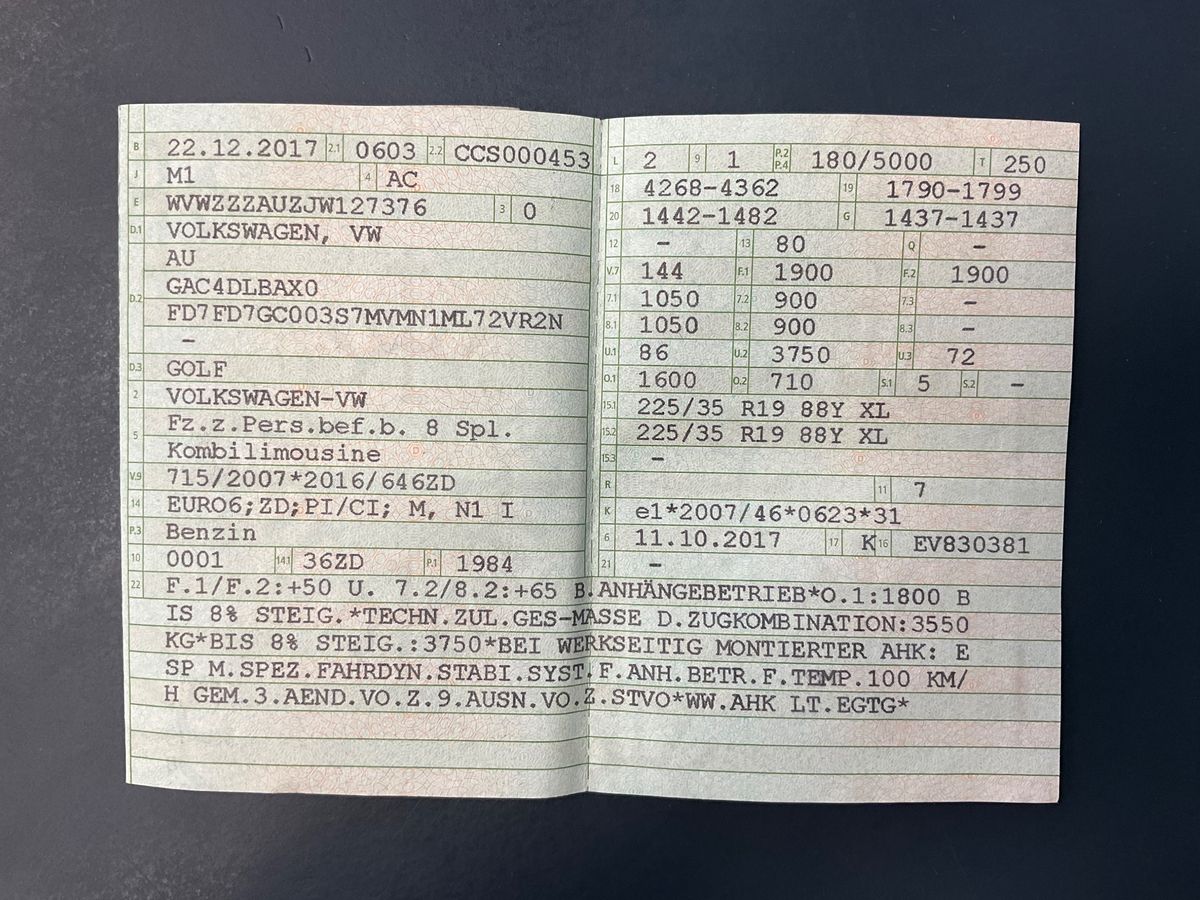 B 22.12.2017 2.1 0603 2.2 CCS000453
J M1 4 AC
E WVWZZZAUZJW127376 3 0
D.1 VOLKSWAGEN, VW
AU
D.2 GAC4DLBAX0
FD7FD7GC003S7MVMN1ML72VR2N
–
D.3 GOLF
2 VOLKSWAGEN-VW
5 Fz.z.Pers.bef.b. 8 Spl.
Kombilimousine
V.9 715/2007*2016/646ZD
14 EURO6;ZD;PI/CI; M, N1 I
P.3 Benzin
10 0001 14.1 36ZD P.1 1984
L 2 9 1 P.2 P.4 180/5000 T 250
18 4268-4362 19 1790-1799
20 1442-1482 G 1437-1437
12 – 13 80 Q –
V.7 144 F.1 1900 F.2 1900
7.1 1050 7.2 900 7.3 –
8.1 1050 8.2 900 8.3 –
U.1 86 U.2 3750 U.3 72
O.1 1600 O.2 710 S.1 5 S.2 –
15.1 225/35 R19 88Y XL
15.2 225/35 R19 88Y XL
15.3 –
R 11 7
K e1*2007/46*0623*31
6 11.10.2017 17 K 16 EV830381
21 –
22 F.1/F.2:+50 U. 7.2/8.2:+65 B.ANHÄNGEBETRIEB*O.1:1800 B
IS 8% STEIG.*TECHN.ZUL.GES-MASSE D.ZUGKOMBINATION:3550
KG*BIS 8% STEIG.:3750*BEI WERKSEITIG MONTIERTER AHK: E
SP M.SPEZ.FAHRDYN.STABI.SYST.F.ANH.BETR.F.TEMP.100 KM/
H GEM.3.AEND.VO.Z.9.AUSN.VO.Z.STVO*WW.AHK LT.EGTG*